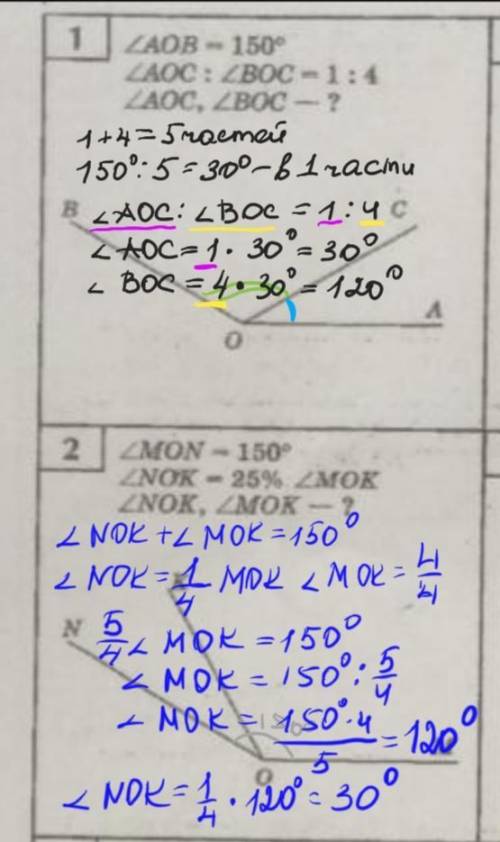 1
∠AOB = 150°
∠AOC : ∠BOC = 1 : 4
∠AOC, ∠BOC — ?
1+4=5частей
150°:5=30°-в 1 части
B ∠AOC:∠BOC = 1:4 C
∠AOC=1·30°=30°
∠ BOC=4·30°=120°
A
O
2
∠MON = 150°
∠NOK = 25% ∠MOK
∠NOK, ∠MOK — ?
∠NOK+∠MOK=150°
∠NOK=1/4 MOK ∠MOK=4/4
N 5/4∠MOK=150°
∠MOK=150°:5/4
∠MOK=150°·4/5=120°
O
∠NOK=1/4·120°=30°